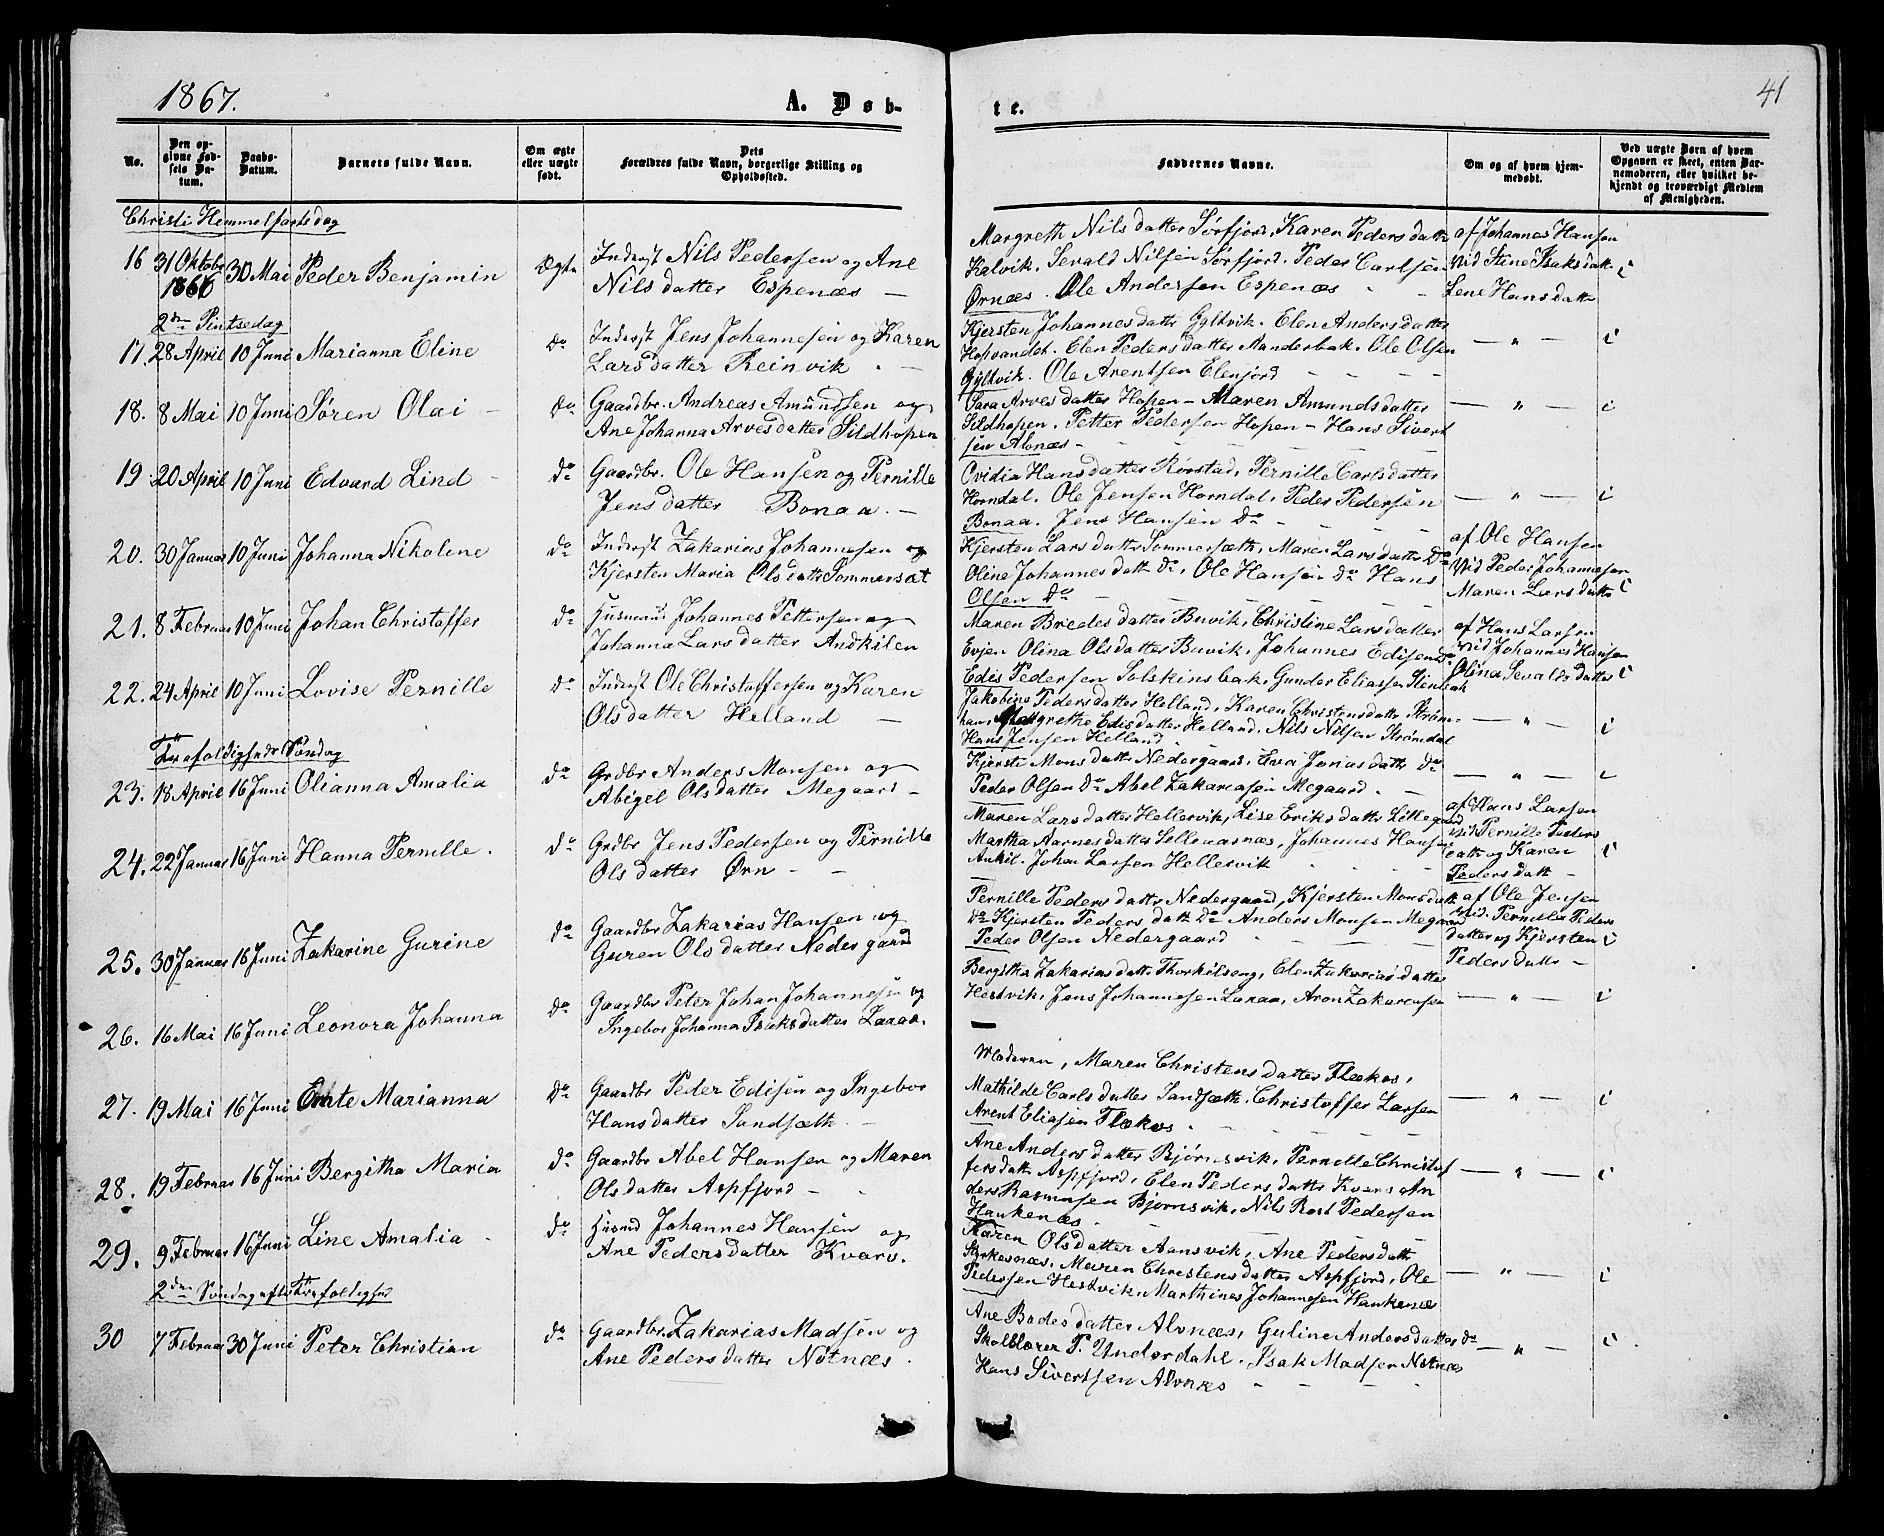 1867.
A. Døb-
te.
41
No.
Den opgivne Fødsels Datum.
Daabs-Datum.
Barnets fulde Navn.
Om ægte eller uægte født.
Dets Forældres fulde Navn, borgerlige Stilling og Opholdssted.
Faddernes Navne.
Om og af hvem hjemmedøbt.
Ved uægte Børn af hvem Opgaven er skeet, enten Barnemoderen, eller hvilket bekjendt og troværdigt Medlem af Menigheden.
Christi Hemmelfartsdag
16 31 Oktobr 1866 30 Mai Peder Benjamin Ægte
Inderst Nils Pedersen og Ane
Nilsdatter Espenæs —
Margreth Nilsdatter Sørfjord, Karen Pedersdatt
Kalvik. Sevald Nilsen Sørfjord. Peder Carlsen
Ørnæs. Ole Andersen Espenæs
af Johannes Hansen
Vid Stine Isaksdatt
Lene Hansdatte
2den Pintsedag
17. 28 April 10 Juni Marianna Eline do
Inderst Jens Johannesen og Karen
Larsdatter Reinvik
Kjersten Johannesdatter Gyltvik. Elen Andersdatter
Hopvandet. Elen Pedersdatter Aanderbak. Ole Olsen
Gyltvik. Ole Arentsen Elenjord
— " —
18. 8 Mai 10 Juni Søren Olai — do
Gaardbr. Andreas Amundsen og
Ane Johanna Arvesdatter Sildhopen
Sara Arvesdatter Hopen — Maren Amundsdatter
Sildhopen. Petter Pedersen Hopen — Hans Sivert
sen Alvnæs —
— " —
19. 20 April 10 Juni Edvard Lind do
Gaardbr. Ole Hansen og Pernille
Jensdatter Bonaa. —
Ovidia Hansdatter Rørstad, Pernille Carlsdatter
Horndal. Ole Jensen Horndal, Peder Pedersen
Bonaa. Jens Hansen do
— " —
20. 30 Januar 10 Juni Johanna Nikolene do
Inderst Zakarias Johannesen og
Kjersten Maria Olsdatter Sommersæt
Kjersten Larsdatter Sommersæth, Maren Larsdatter do
Oline Johannesdatt do, Ole Hansen do Hans
Olsen do
af Ole Hansen
Vid Peder Johannesen
Maren Larsdatte
21. 8 Februar 10 Juni Johan Christoffer do
Husmand Johannes Pettersen og
Johanna Larsdatter Andkilen
Maren Bredesdatter Buvik, Christine Larsdatter
Evjen Olina Olsdatter Buvik, Johannes Edisen do
Edis Pedersen Solskinsbak, Gunder Eliassen Stenbak
af Hans Larsen
Vid Johannes Hansen
Olina Sevaldsdatter
22. 24 April 10 Juni Lovise Pernille do
Inderst Ole Christoffersen og Karen
Olsdatter Helland —
Jakobine Pedersdatter Helland, Karen Christensdatter Strøm=
hau, Margrethe Edisdatter Helland. Nils Nilsen Strømdal
Hans Jensen Helland
— " —
Trefoldigheds Søndag
23. 18 April 16 Juni Olianna Amalia do
Grdbr Anders Monsen og
Abigel Olsdatter Megaard —
Kjersti Monsdatter Nedergaard, Eva Jonasdatter do
Peder Olsen do Abel Zakariasen Megaard.
— " —
24. 22 Januar 16 Juni Hanna Pernille. do
Grdbr Jens Pedersen og Pernille
Olsdatter Ørn —
Maren Larsdatter Hellervik, Lise Eriksdatter Lillegaard
Martha Aarnesdatter, Johannes Hansen
Ankil. Johan Larsen Hellesvik
af Hans Larsen
Vid Pernille Peders
datt og Karen
Pedersdatt —
25. 30 Januar 16 Juni Zakarine Gurine do
Gaardbr Zakarias Hansen og
Guren Olsdatter Nedergaard
Pernille Pedersdatter Nedergaard, Kjersten Monsdatt
do Kjersten Pedersdatt do Anders Monsen Megaard
Peder Olsen Nedergaard
af Ole Jensen
Vid. Pernille Peders
datter og Kjersten
Pedersdatte —
26. 16 Mai 16 Juni Leonora Johanna do
Gaardbr Peter Johan Johannesen og
Ingebor Johanna Isaksdatter Laraa.
Bergitha Zakariasdatter Thorkilseng, Elen Zakariasdatter
Hestvik, Jens Johannesen Laraa, Aron Zakariasen
— " —
27. 19 Mai 16 Juni Marianna do
Gaardbr Peder Edisen og Ingebor
Hansdatter Sandsæth —
Moderen, Maren Christensdatter Flekos,
Mathilde Carlsdatter Sandsæth. Christoffer Larsen
Arent Eliasen Flækos
— " —
28. 19 Februar 16 Juni Bergitha Maria do
Gaardbr Abel Hansen og Maren
Olsdatter Aspfjord —
Ane Andersdatter Bjørnsvik, Pernille Christof
fersdatt Aspfjord, Elen Pedersdatter Kvars An
ders Rasmusen Bjørnsvik, Nils Rost Pedersen
Haukenæs
— " —
29. 9 Februar 16 Juni Line Amalia — do
Husmd Johannes Hansen og
Ane Pedersdatter Kvarv.
Karen Olsdatter Aansvik, Ane Pedersdatt
Styrkesnæs, Maren Christensdatter Aspfjord, Ole
Pedersen Hestvik, Marthines Johannesen Haukenæs
— " —
2den Søndag efter Trefoldighed
30 7 Februar 30 Juni Peter Christian do
Gaardbr. Zakarias Madsen og
Ane Pedersdatter Notnæs.
Ane Badesdatter Alvnæs, Guline Andersdatter do
Skollærer P. Underdahl. Isak Madsen Notnæs
Hans Sivertsen Alvnæs
— " —